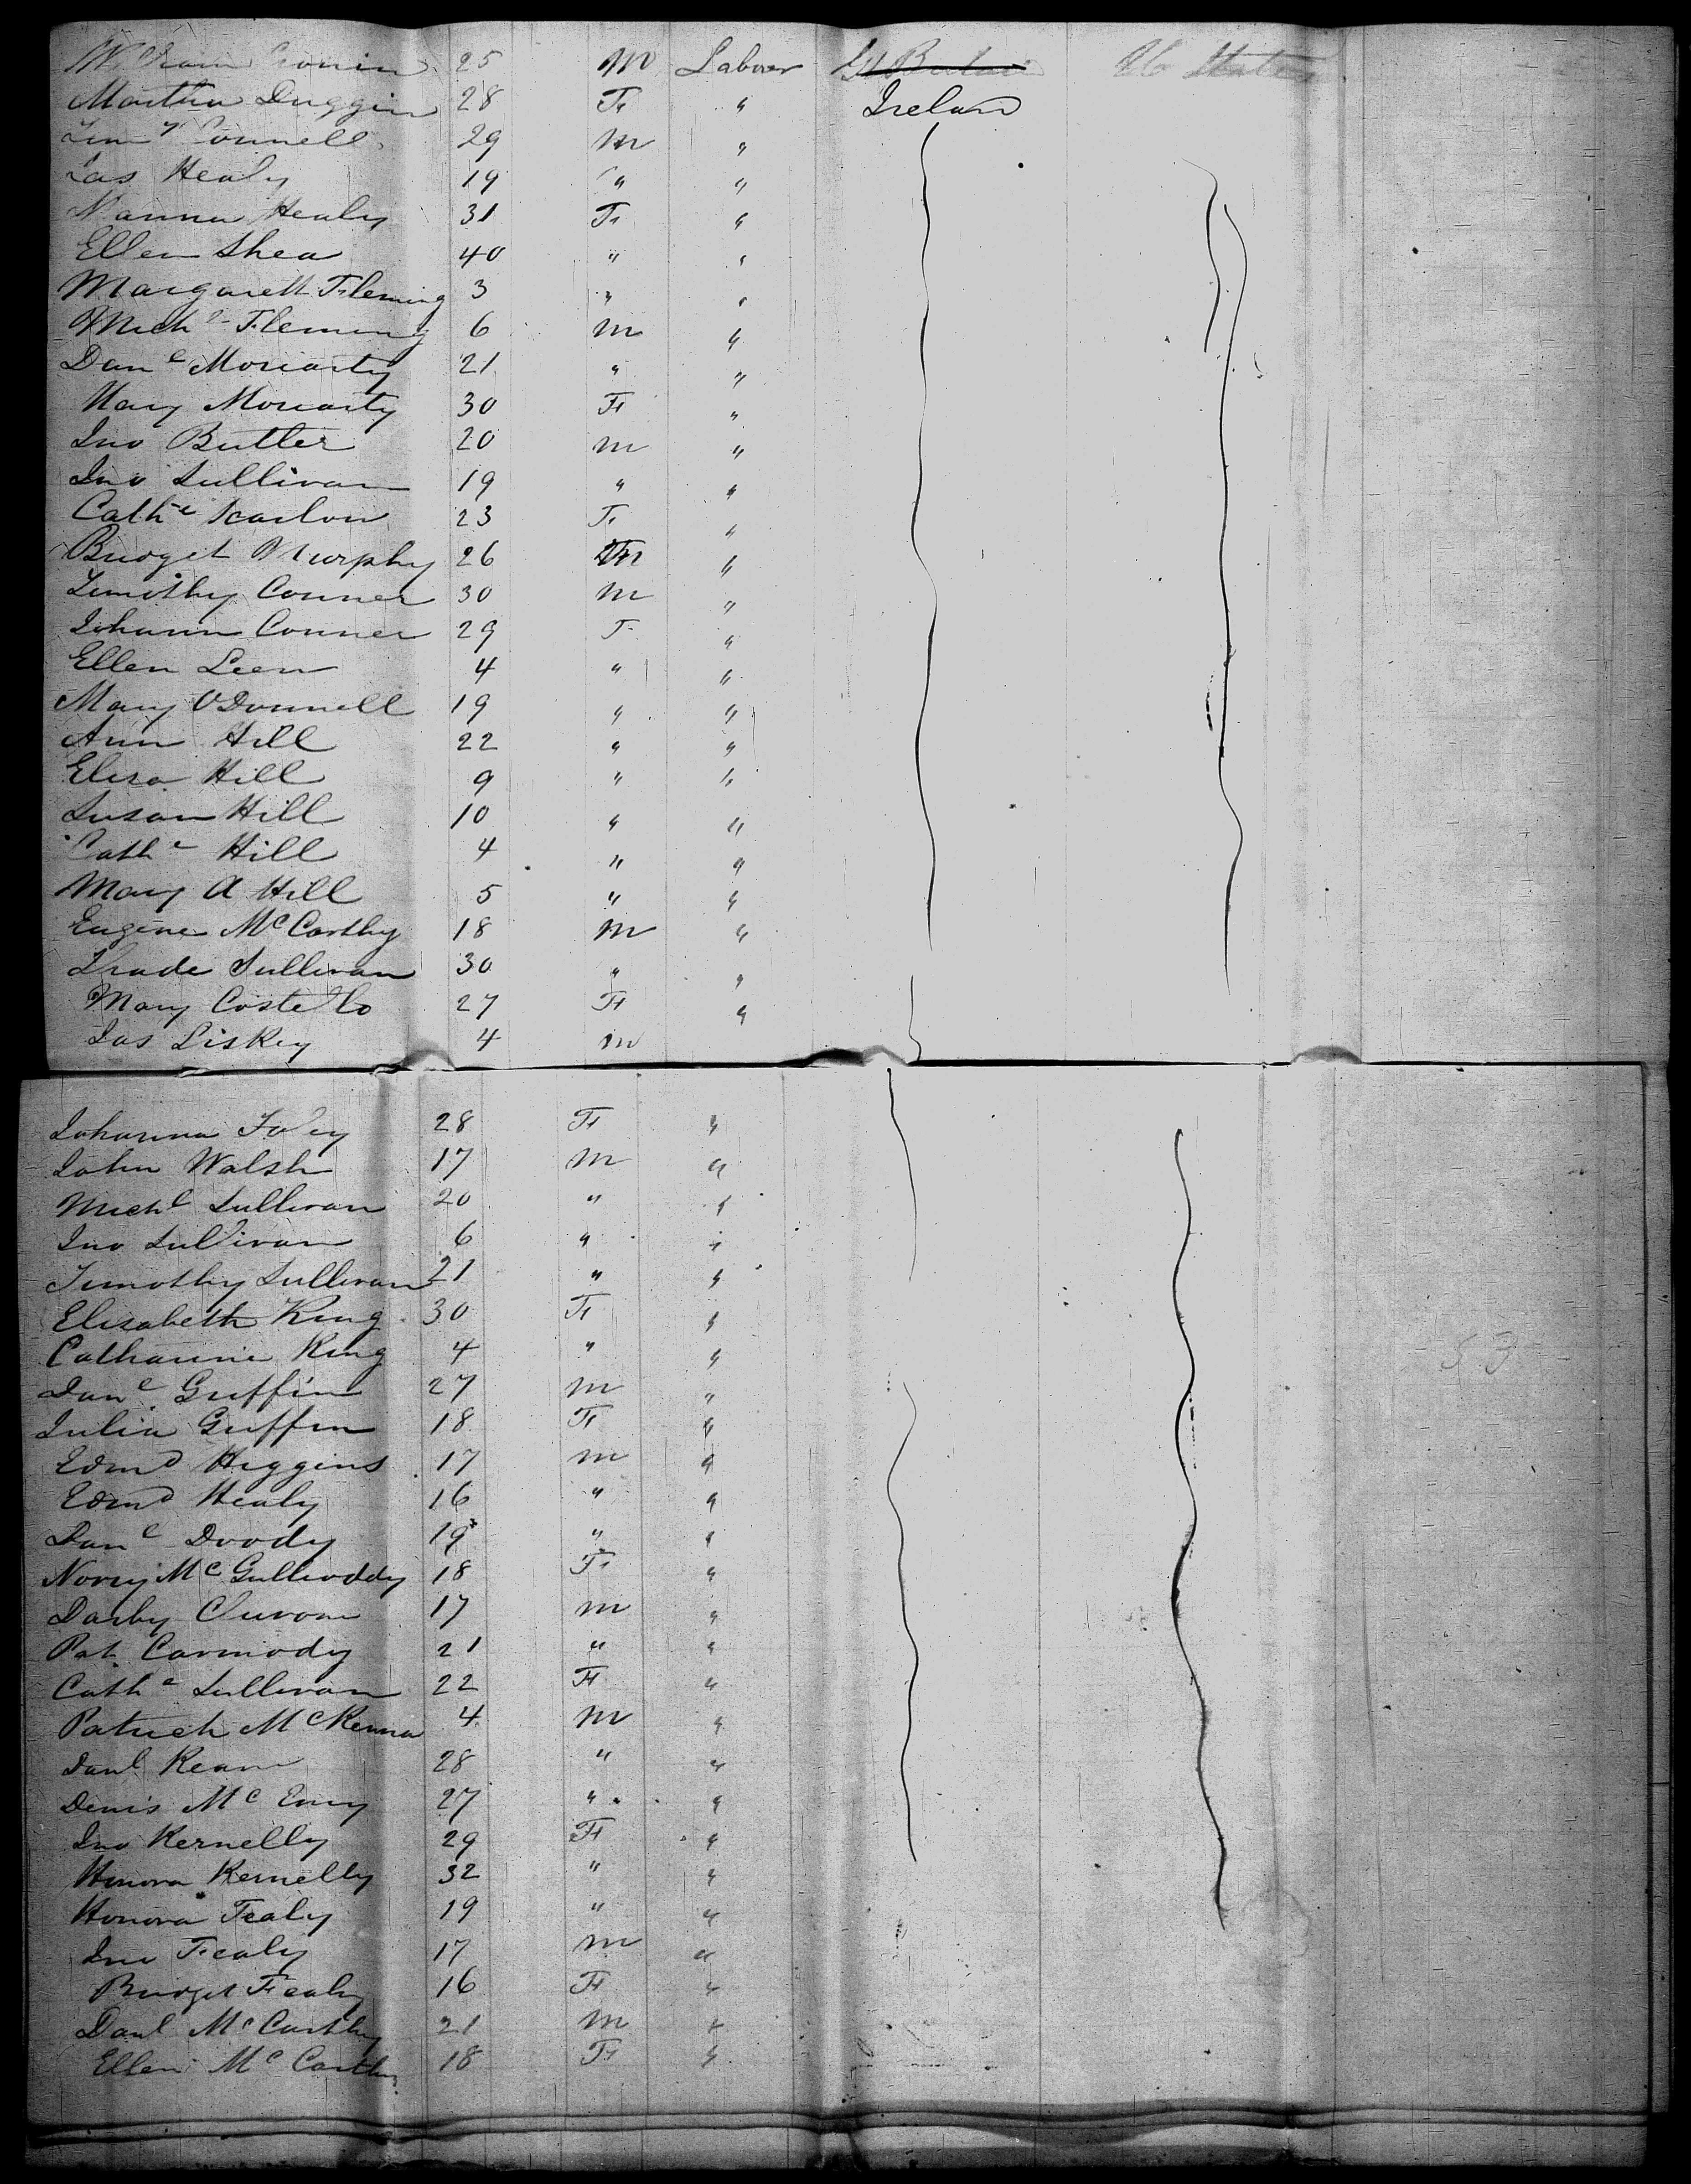 William Cronin 25 M Laborer Gt Britain U States
Martha Duggin 28 F " Ireland
Tim Connell 29 M "
Jas Healy 19 " "
Nanna Healy 31 F "
Ellen Shea 40 " "
Margarett Fleming 3 " "
Michl Fleming 6 M "
Danl Moriarty 21 " "
Mary Moriarty 30 F "
Jno Butler 20 M "
Jno Sullivan 19 " "
Cathe Scanlon 23 F "
Bridget Murphy 26 "
Timothy Conner 30 M "
Johann Conner 29 F "
Ellen Leen 4 " "
Mary O'Donnell 19 " "
Ann Hill 22 " "
Eliza Hill 9 " "
Susan Hill 10 " "
Cathe Hill 4 " "
Mary A Hill 5 " "
Eugene McCarthy 18 M "
Thade Sullivan 30 " "
Mary Costello 27 F "
Jas Liskey 4 M
Johanna Foley 28 F "
John Walsh 17 M "
Michl Sullivan 20 " "
Jno Sullivan 6 " "
Timothy Sullivan 21 " "
Elisabeth King 30 F "
Catharine King 4 " "
Danl Griffin 27 M "
Julia Griffin 18 F "
Edmd Higgins 17 M "
Edmd Healy 16 " "
Danl Doody 19 " "
Norry McGillicoddy 18 F "
Darby 17 M "
Pat Carmody 21 " "
Cathe Sullivan 22 F "
Patrick McKenna 4 M "
Danl Kean 28 " "
Denis McEnry 27 " "
Jno Kernelly 29 F "
Honora Kernelly 32 " "
Honora Fealy 19 " "
Jno Fealy 17 M "
Bridget Fealy 16 F "
Danl McCarthy 21 M "
Ellen McCarthy 18 F "
53